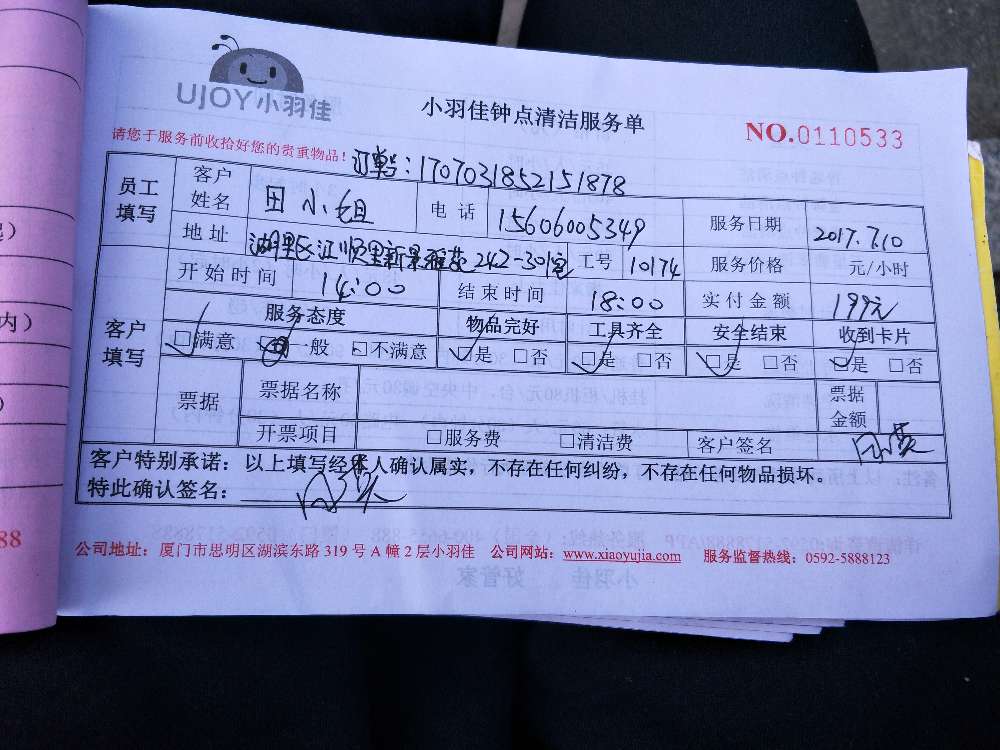 UJOY小羽佳
小羽佳钟点清洁服务单
NO.0110533
请您于服务前收拾好您的贵重物品！
订单号：1707031852151878
员工填写 客户姓名 田小姐 电话 15606005349 服务日期 2017.7.10
地址 湖里区江顺里新景雅苑242-301室 工号 10174 服务价格 元/小时
开始时间 14:00 结束时间 18:00 实付金额 199元
客户填写 服务态度 物品完好 工具齐全 安全结束 收到卡片
□满意 □一般 □不满意 □是 □否 □是 □否 □是 □否 □是 □否
票据 票据名称 票据金额
开票项目 □服务费 □清洁费 客户签名
客户特别承诺：以上填写经本人确认属实，不存在任何纠纷，不存在任何物品损坏。
特此确认签名：
公司地址：厦门市思明区湖滨东路 319 号 A 幢 2 层小羽佳 公司网站：www.xiaoyujia.com 服务监督热线：0592-5888123